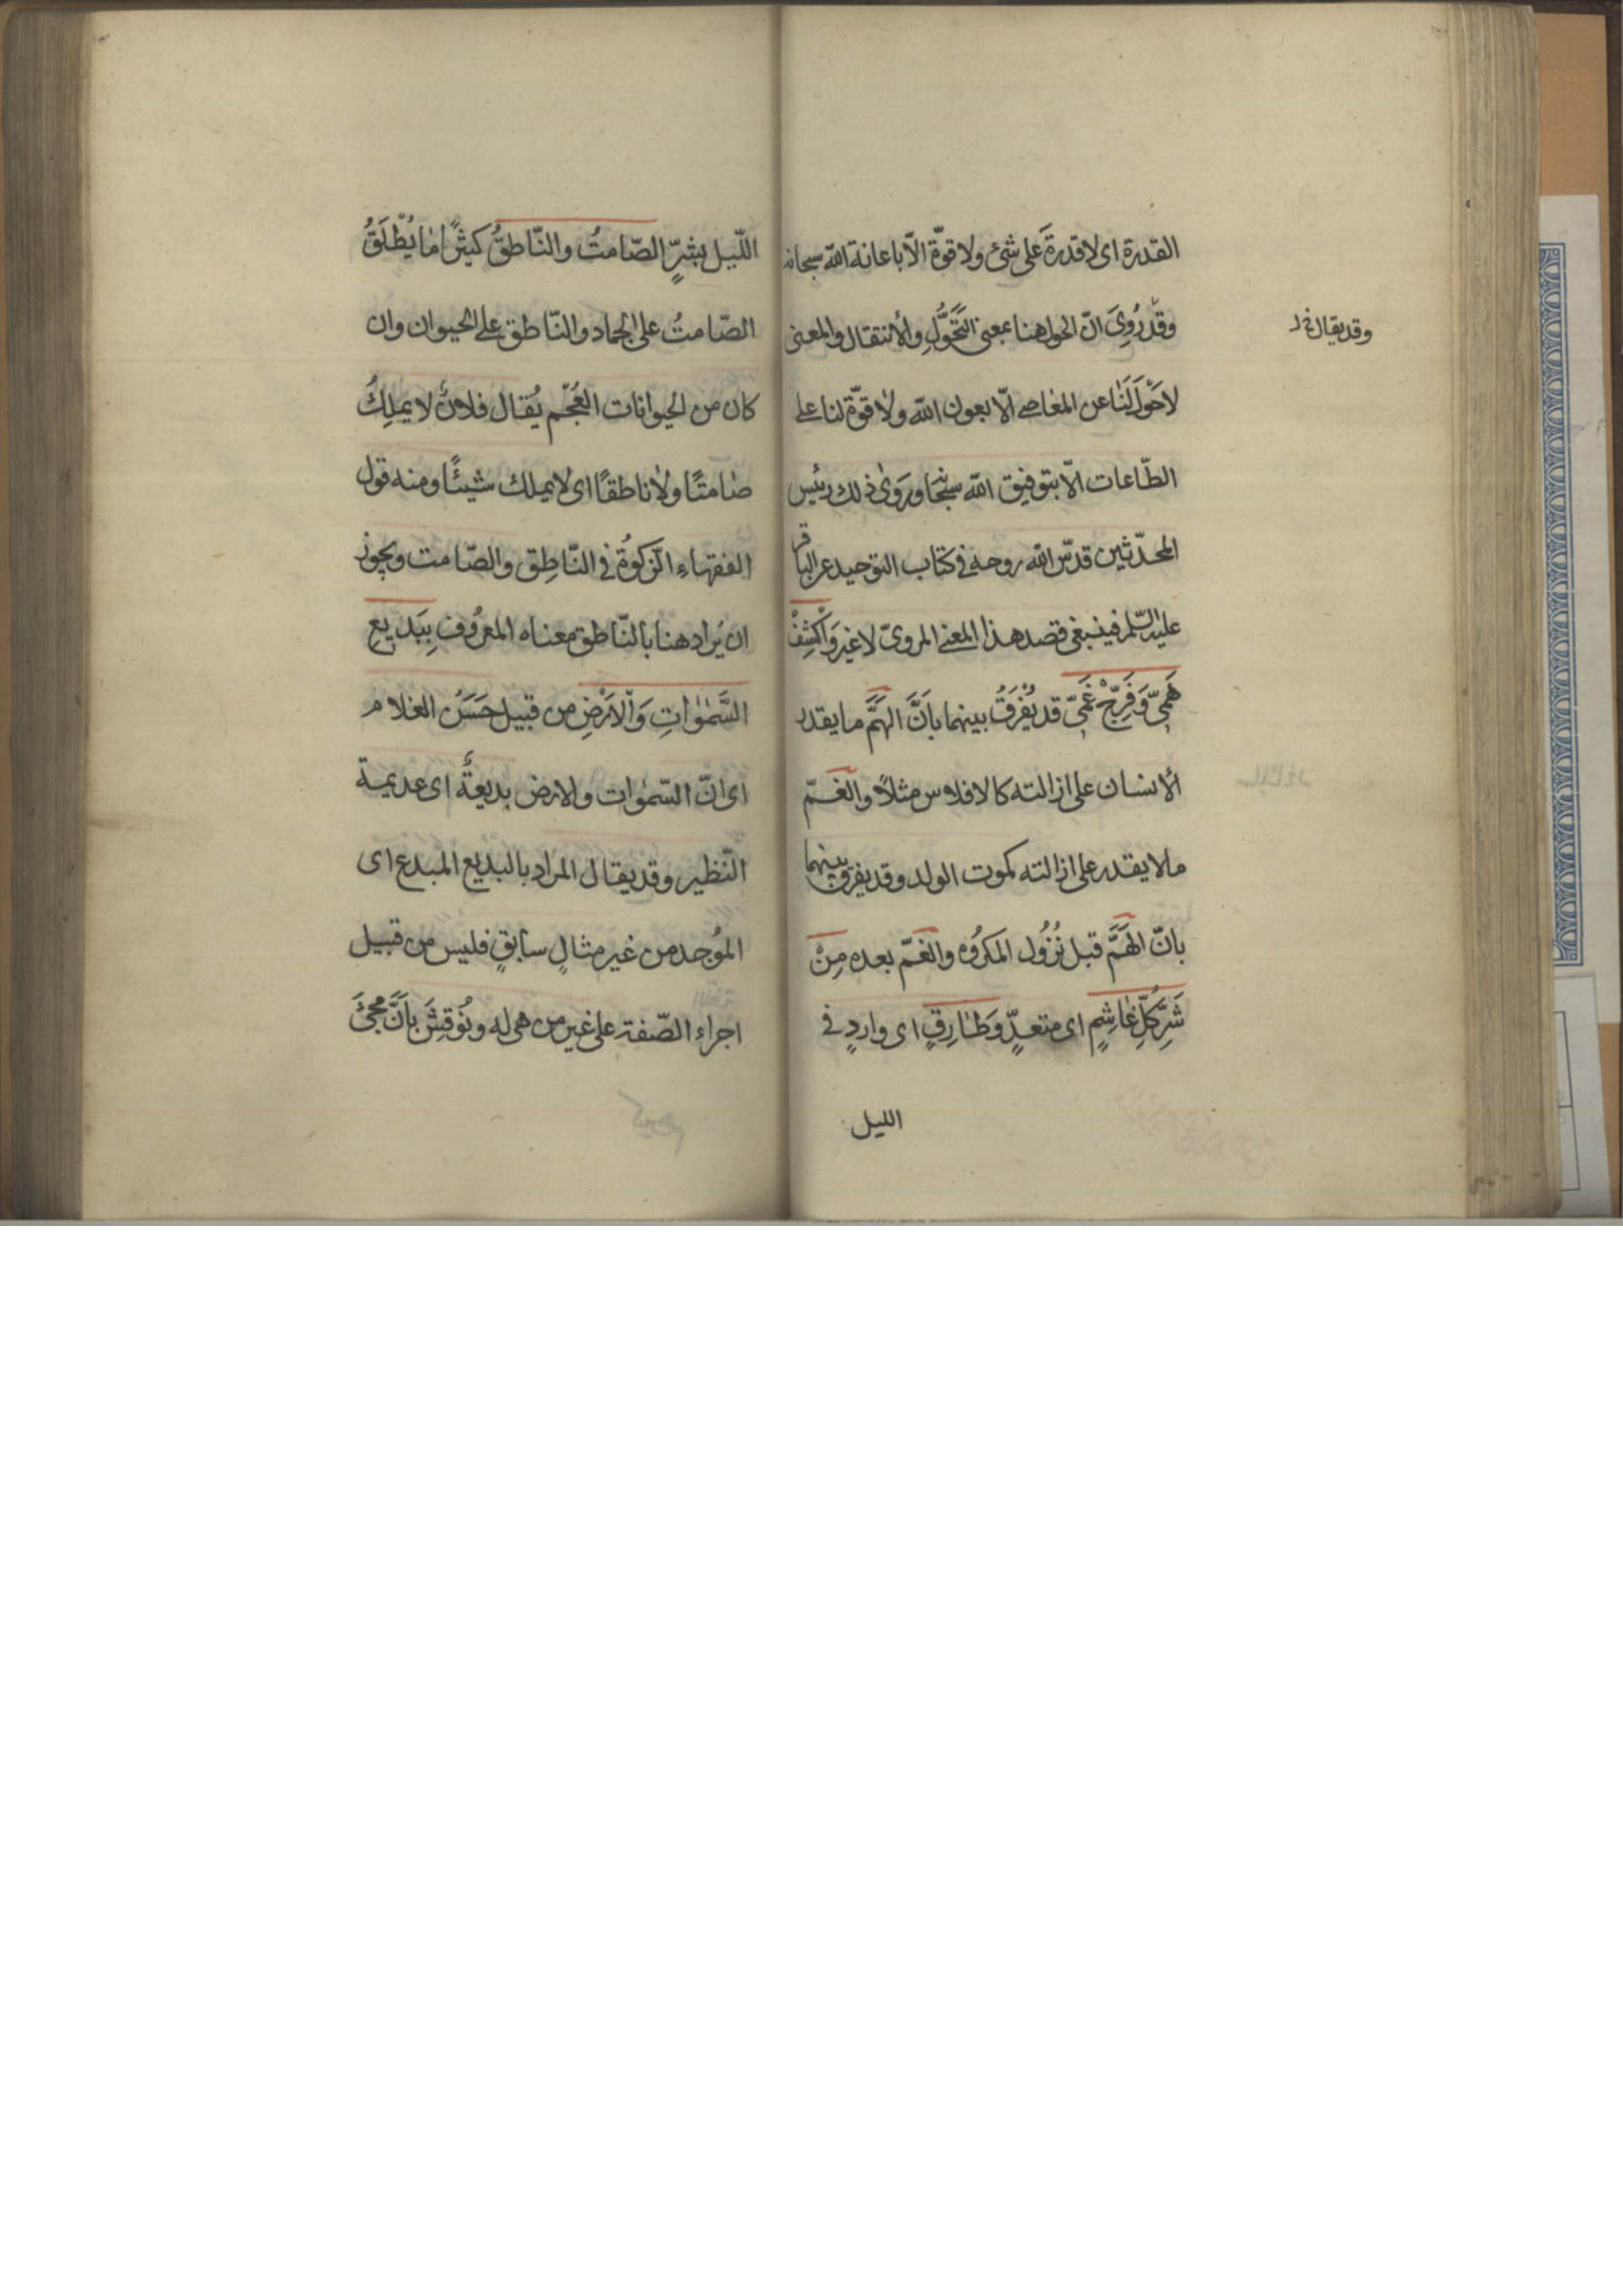 القدرة اى لا قدرةَ على شئ ولا قوّة الّا باعانة الله سبحانه
وقد رُوِىَ انّ الحول هنا بمعنى التَّحَوُّلِ والأنتقال والمعنى
وقد يقال
لا حَوْلَ لَنَا عن المعاصى الّا بعون الله ولا قوّة لنا على
الطّاعات الّا بتوفيق الله سبحانه وروى ذلك رئيس
المحدّثين قدّس الله روحه فى كتاب التوحيد عن الباقر
عليه السّلم فينبغى قصد هذا المعنى المروىّ لا غير وَاكْشِفْ
هَمِّىّ وَفَرِّجْ غَمِّىّ قد يُفْرَقُ بينهما بانَّ الهَمَّ ما يقدر
ألانسان على ازالته كالافلاس مثلاً والغَمّ
ما لا يقدر على ازالته كموت الولد وقد يفرق بينهما
بانّ الهَمَّ قبل نُزُول المكرُوه والغَمّ بعده مِنْ
شَرِّ كُلِّ غٰاشِمٍ اى متعدٍّ وَطٰارِقٍ اى واردٍ فى
الليل
اللّيل بشرٍّ الصّامتُ والنّاطقُ كثيرًا مٰا يُطْلَقُ
الصّامتُ على الجماد والنّاطق على الحيوان وان
كان من الحيوانات العُجْم يُقال فلانٌ لا يملِكُ
صٰامتًا ولٰا ناطقًا اى لا يملك شيئًا ومنه قول
الفقهاءِ الزّكوٰة فى النّاطِق والصّامت ويجوز
ان يُراد هنا بالنّاطق معناه المعرُوف بِبَديعِ
السَّمٰوٰاتِ وَالْاَرْضِ من قبيل حَسَنُ الغلام
اى انّ السّمٰوات والارض بديعةٌ اى عديمة
النّظير وقد يقال المراد بالبديع المبدع اى
المُوجد من غير مثالٍ سابقٍ فليس من قبيل
اجراءِ الصّفة على غير من هى له ونُوقِشَ بأَنَّ مجئَ